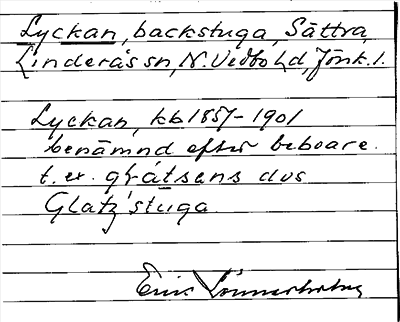 Lyckan, backstuga, Sättra,
Linderås sn, N. Vedbo hd, Jönk. l.
Lyckan, kb 1857-1901
benämnd efter beboare.
t. ex. glåtsens dvs
Glatz' stuga.
Erik Lönnerholm